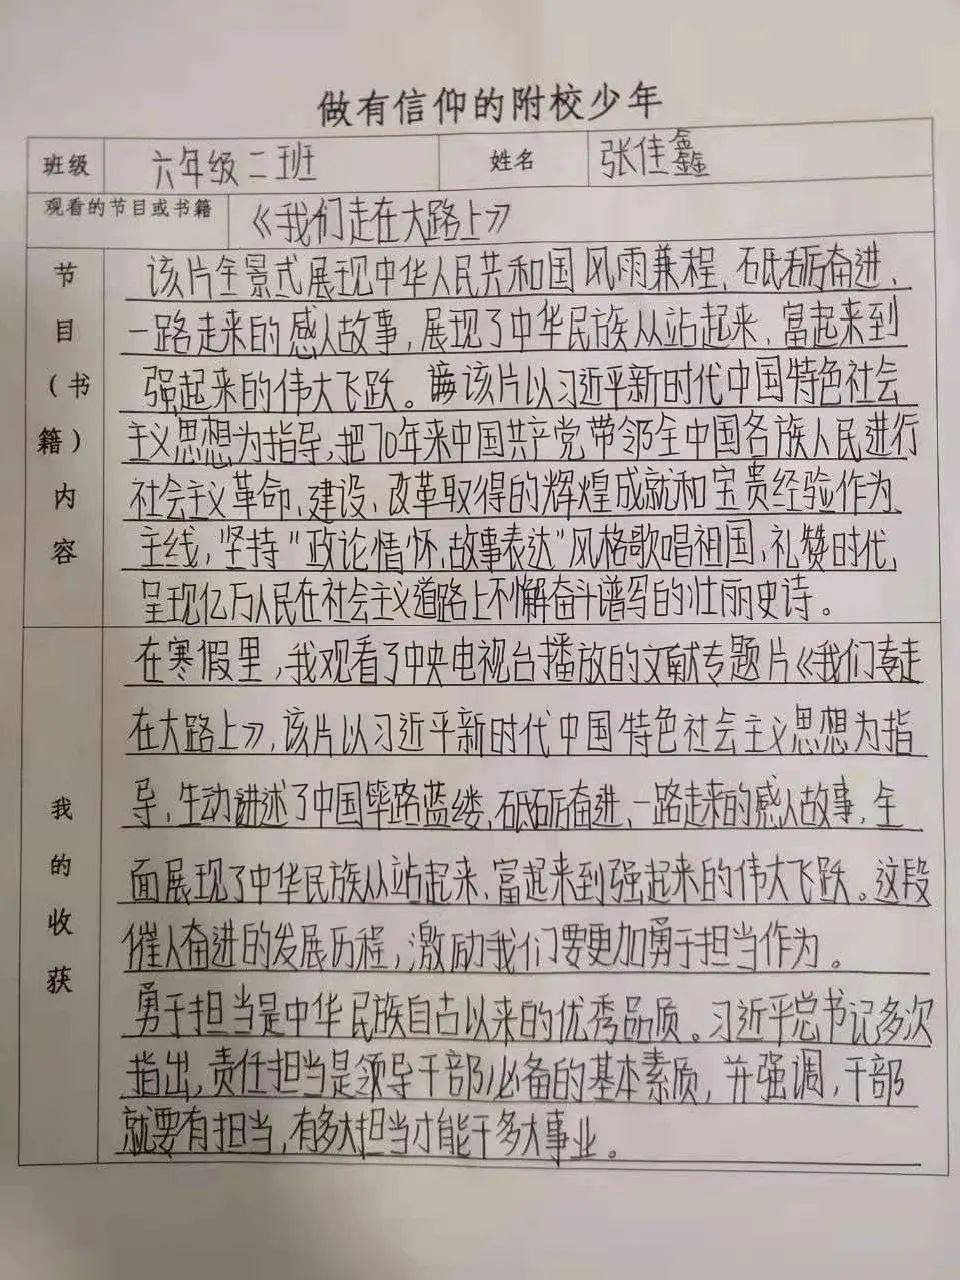 做有信仰的附校少年
班级 六年级二班 姓名 张佳鑫
观看的节目或书籍 《我们走在大路上》
节目(书籍)内容
该片全景式展现中华人民共和国风雨兼程、砥砺奋进、
一路走来的感人故事,展现了中华民族从站起来、富起来到
强起来的伟大飞跃。该片以习近平新时代中国特色社会
主义思想为指导,把70年来中国共产党带领全中国各族人民进行
社会主义革命、建设、改革取得的辉煌成就和宝贵经验作为
主线,坚持"政论情怀、故事表达"风格歌唱祖国、礼赞时代,
呈现亿万人民在社会主义道路上不懈奋斗谱写的壮丽史诗。
我的收获
在寒假里,我观看了中央电视台播放的文献专题片《我们走
在大路上》,该片以习近平新时代中国特色社会主义思想为指
导,生动讲述了中国筚路蓝缕、砥砺奋进、一路走来的感人故事,全
面展现了中华民族从站起来、富起来到强起来的伟大飞跃。这段
催人奋进的发展历程,激励我们要更加勇于担当作为。
勇于担当是中华民族自古以来的优秀品质。习近平总书记多次
指出,责任担当是领导干部必备的基本素质,并强调,干部
就要有担当,有多大担当才能干多大事业。